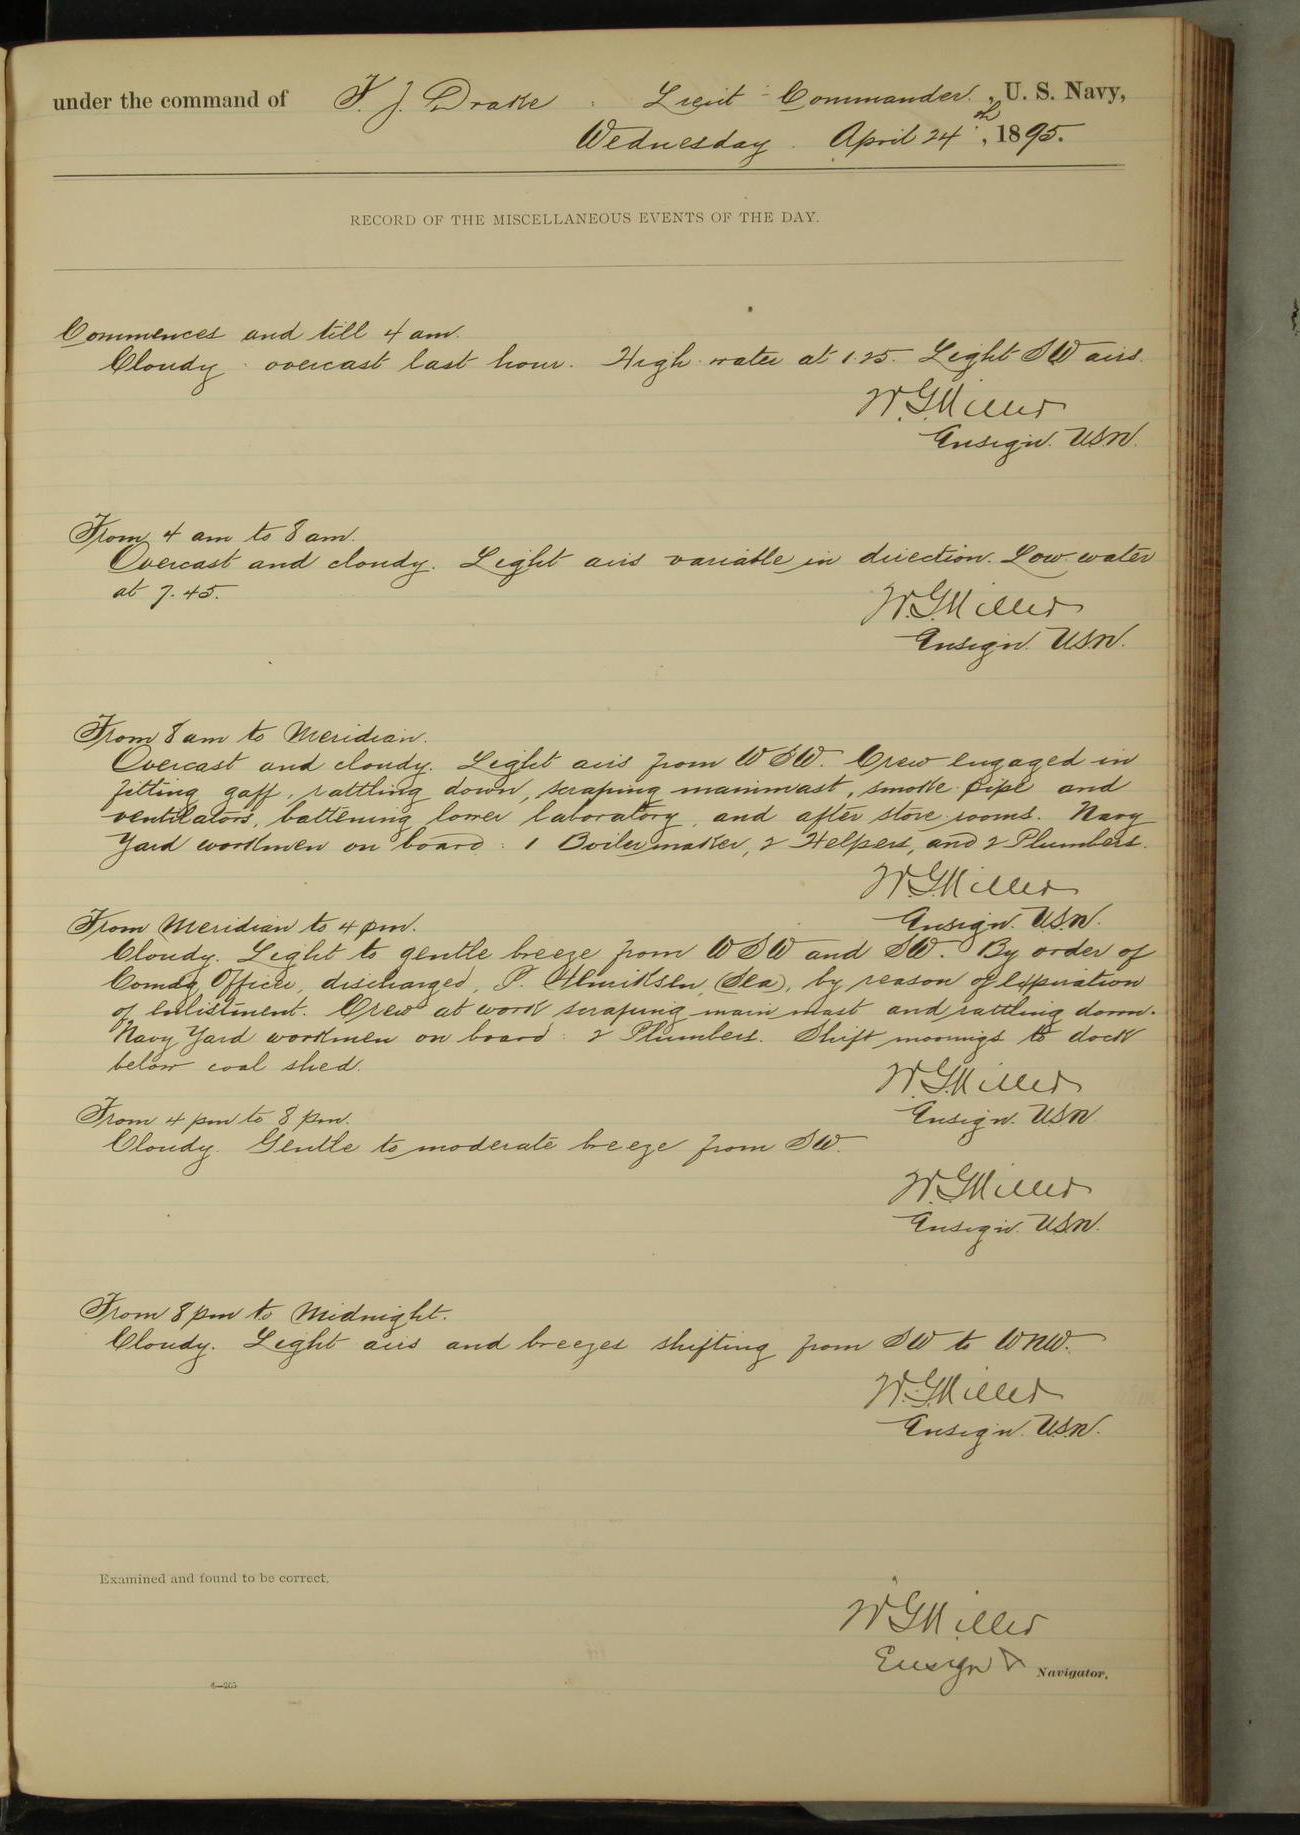 under the command of F. J. Drake, Lieut-Commander., U. S. Navy,
Wednesday. April 24th, 1895.
RECORD OF THE MISCELLANEOUS EVENTS OF THE DAY.
Commences and till 4 am.
Cloudy. overcast last hour. High water at 1.25. Light SW airs.
W.G. Miller
Ensign. U.S.N.
From 4 am to 8 am.
Overcast and cloudy. Light airs variable in direction. Low water
at 7.45.
W.G. Miller
Ensign U.S.N.
From 8 am to Meridian.
Overcast and cloudy. Light airs from WSW. Crew engaged in
fitting gaff, rattling down, scraping mainmast, smoke pipe and
ventilators, battening lower laboratory, and after store rooms. Navy
Yard workmen on board: 1 Boilermaker, 2 Helpers, and 2 Plumbers.
W.G. Miller
Ensign. U.S.N.
From Meridian to 4 pm.
Cloudy. Light to gentle breeze from WSW and SW. By order of
Comdg Officer, discharged, P. Henriksen, (Sea), by reason of expiration
of enlistment. Crew at work scraping main mast and rattling down.
Navy Yard workmen on board: 2 Plumbers. Shift moorings to dock
below coal shed.
W.G. Miller
Ensign. U.S.N.
From 4 pm to 8 pm.
Cloudy. Gentle to moderate breeze from SW.
W.G. Miller
Ensign. U.S.N.
From 8 pm to Midnight.
Cloudy. Light airs and breezes shifting from SW to WNW.
W.G. Miller
Ensign. U.S.N.
Examined and found to be correct.
W.G. Miller
Ensign & Navigator.